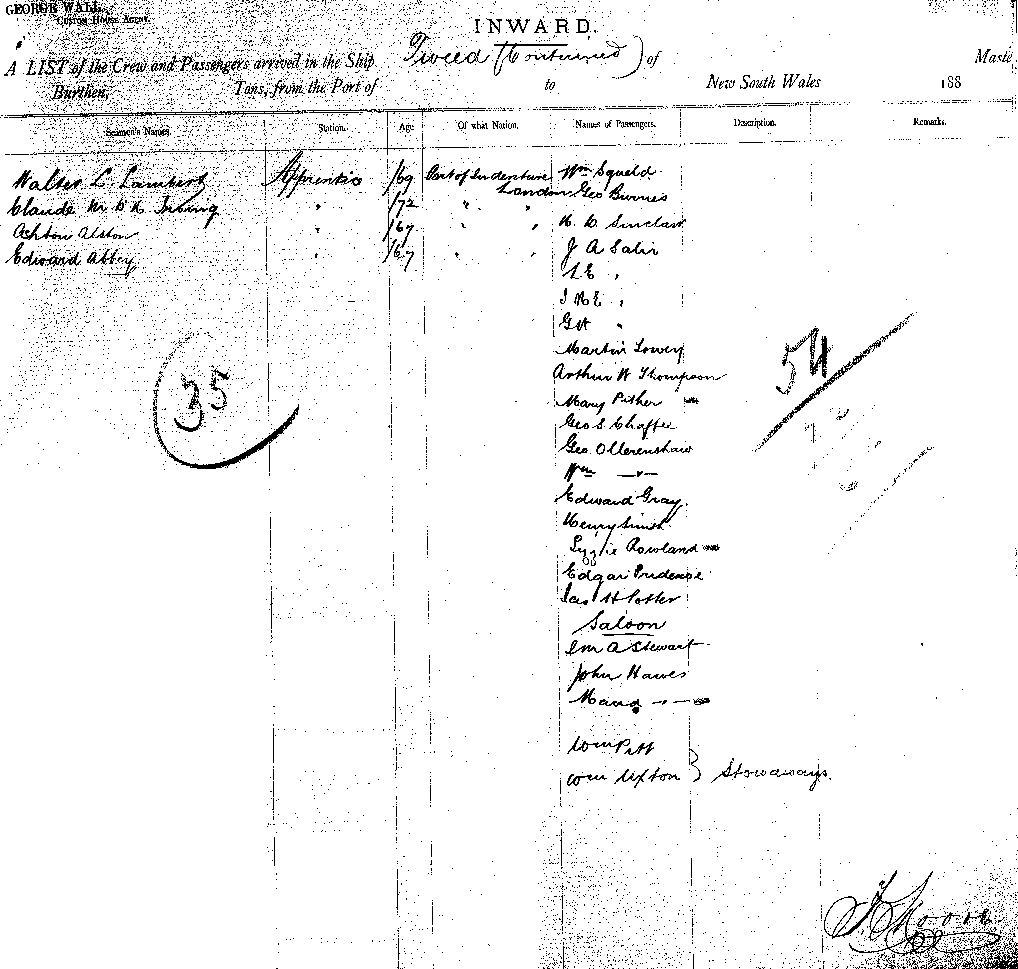 GEORGE WALL,
Custom House Agent.
INWARD.
A LIST of the Crew and Passengers arrived in the Ship Tweed (Continued) of Maste
Burthen, Tons, from the Port of to New South Wales 188
Seamen's Names. Station. Age Of what Nation. Names of Passengers. Description. Remarks.
Walter L. Lambert Apprentice /69 Port of Indenture Wm Squeld
London Geo Burnies
Claude Irving /72 " "
Ashton Alston " /67 " " H. D. Sinclair
Edward Abbey " /67 " " J A Salir
"
"
G H "
Martin Lowery
Arthur W Thompson
Mary Pither
Geo S. Chaffee
Geo Ollerenshaw
Wm —"—
Edward Gray
Henry Smith
Lizzie Rowland
Edgar Prudence
Jas H Potter
Saloon
A Stewart
John Hawes
Maud " —
Wm Pitt
Wm Upton } Stowaways.
35
54
Moore